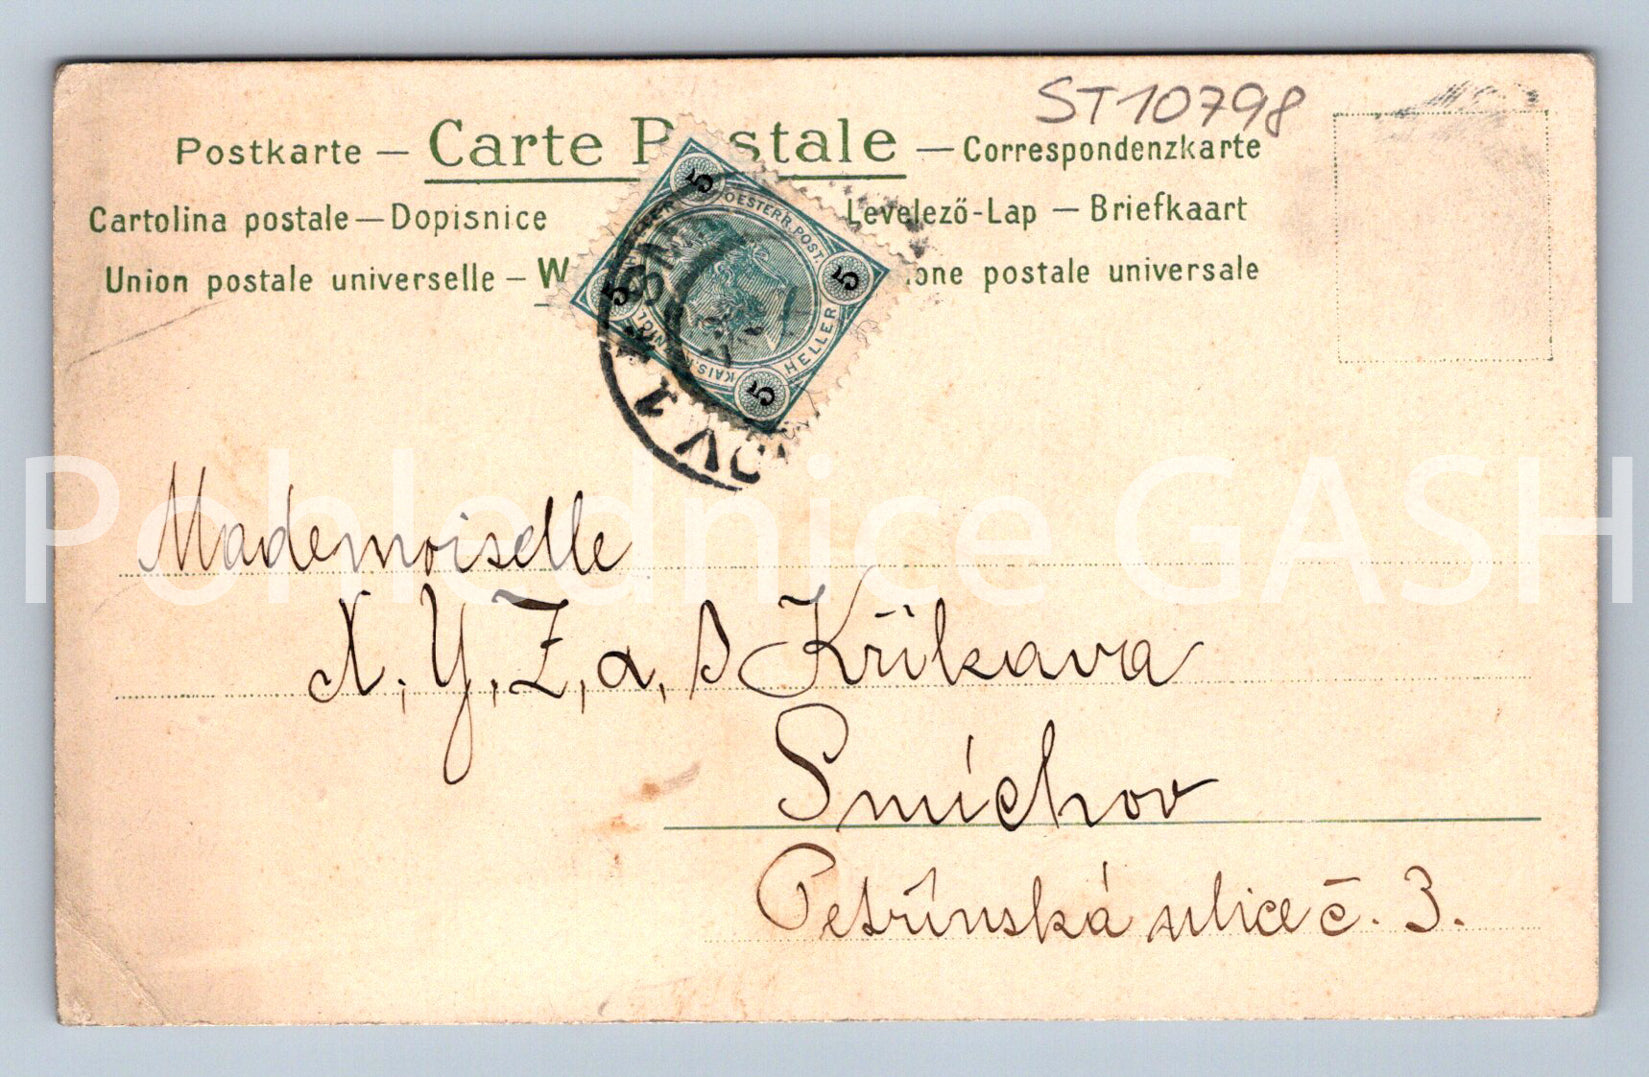 ST10798
Postkarte — Carte P stale — Correspondenzkarte
Cartolina postale — Dopisnice Levelező-Lap — Briefkaart
Union postale universelle — W one postale universale
5 5 5 5
OESTERR. POST.
HELLER
KAIS.
SM
OV 1
Pohlednice GASH
Mademoiselle
X, Y, Z, a, s Křikava
Smíchov
Petřínská ulice č. 3.